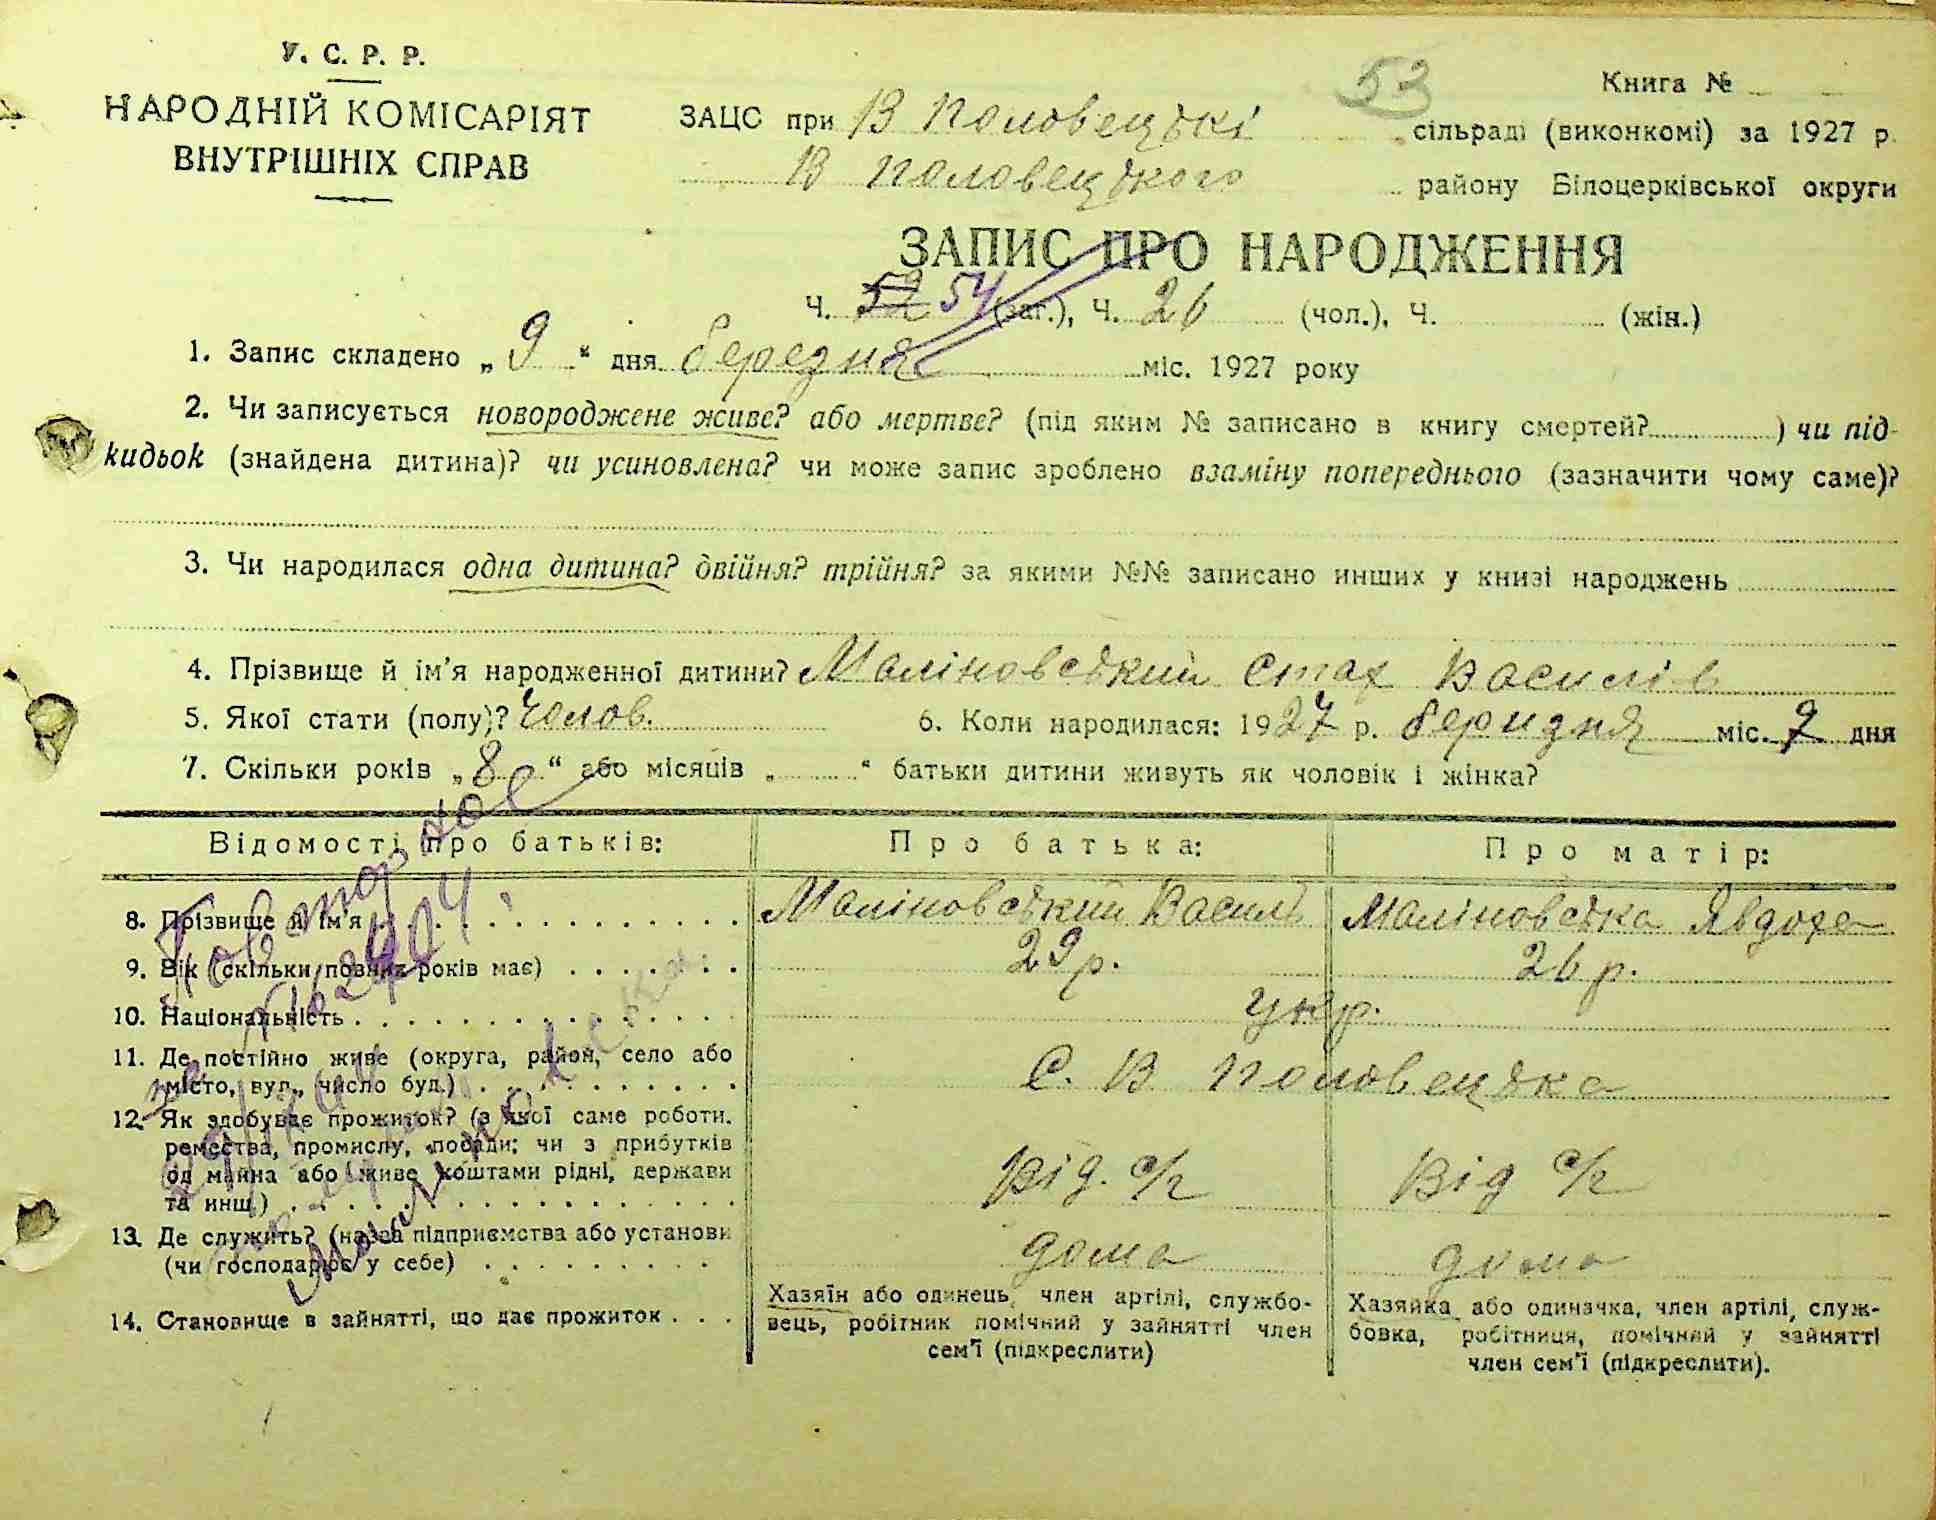 У. С. Р. Р.
НАРОДНІЙ КОМІСАРІЯТ
ВНУТРІШНІХ СПРАВ
53
Книга №
ЗАЦС при В Половецькі сільраді (виконкомі) за 1927 р.
В Половецького району Білоцерківської округи
ЗАПИС ПРО НАРОДЖЕННЯ
Ч. 52 54 (заг.), Ч. 26 (чол.), Ч. (жін.)
1. Запис складено „ 9 “ дня березня міс. 1927 року
2. Чи записується новороджене живе? або мертве? (під яким № записано в книгу смертей? ) чи під-
кидьок (знайдена дитина)? чи усиновлена? чи може запис зроблено взаміну попереднього (зазначити чому саме)?
3. Чи народилася одна дитина? двійня? трійня? за якими №№ записано инших у книзі народжень
4. Прізвище й ім'я народженної дитини? Маліновський Стах Василів
5. Якої стати (полу)? Чолов. 6. Коли народилася: 1927 р. беридня міс. 7 дня
7. Скільки років „ 8 “ або місяців „ “ батьки дитини живуть як чоловік і жінка?
Відомості про батьків: Про батька: Про матір:
8. Прізвище й ім'я Маліновський Василь Маліновська Явдоха
9. Вік (скільки повних років має) 29 р. 26 р.
10. Національність укр.
11. Де постійно живе (округа, район, село або
місто, вул., число буд.) С. В Половецька
12. Як здобуває прожиток? (з якої саме роботи.
ремества, промислу, посади; чи з прибутків
од майна або живе коштами рідні, держави
та инш.) Від. с/г Від с/г
13. Де служить? (назва підприємства або установи
(чи господарює у себе) дома дома
14. Становище в зайнятті, що дає прожиток
Хазяїн або одинець, член артілі, службо-
вець, робітник помічний у зайнятті член
сем'ї (підкреслити)
Хазяйка або одиначка, член артілі, служ-
бовка, робітниця, помічний у зайнятті
член сем'ї (підкреслити).
Повторное